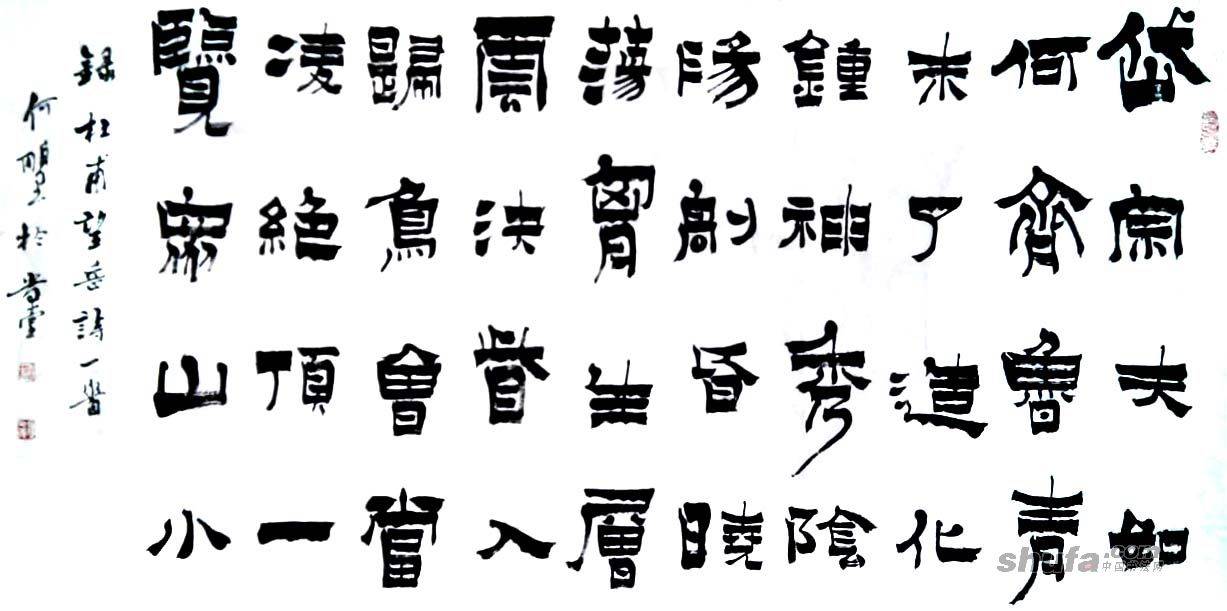 岱宗夫如
何齊魯青
未了造化
鍾神秀陰
陽割昏曉
蕩胷生層
雲決眥入
歸鳥會當
凌絶頂一
覽眾山小
錄杜甫望岳詩一首
何於尚堂
shufa.com
中国书法网